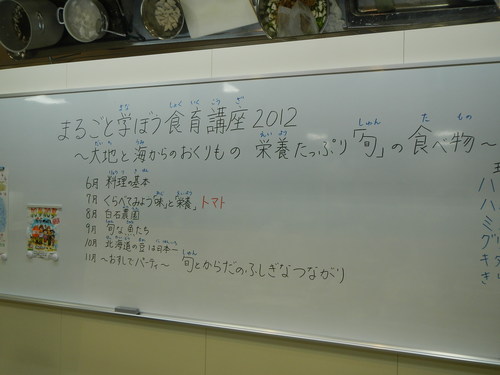 まるごと学ぼう食育講座2012
～大地と海からのおくりもの 栄養たっぷり「旬」の食べ物～
6月 料理の基本
7月 くらべてみよう「味」と「栄養」トマト
8月 白石農園
9月 旬な魚たち
10月 北海道の豆は日本一
11月 ～おすしでパーティ～ 旬とからだのふしぎなつながり